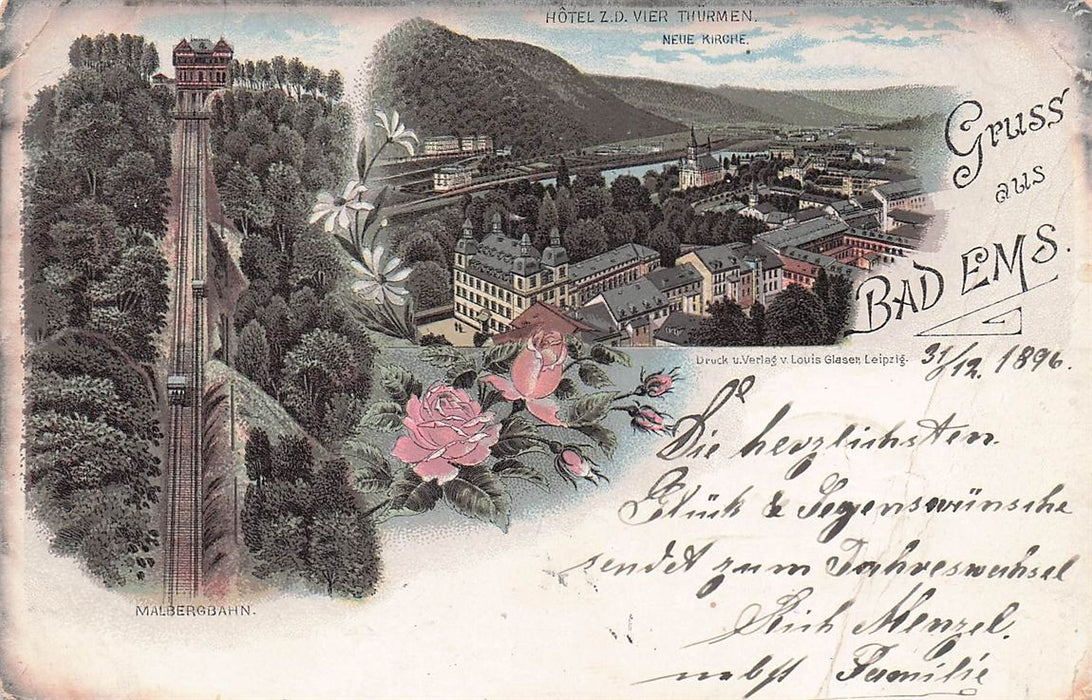 HÔTEL Z.D. VIER THÜRMEN.
NEUE KIRCHE.
Gruss
aus
BAD EMS.
Druck u. Verlag v. Louis Glaser, Leipzig.
31/12. 1896.
Die herzlichsten
Glück & Segenswünsche
sendet zum Jahreswechsel
Rich Menzel.
nebst Familie
MALBERGBAHN.